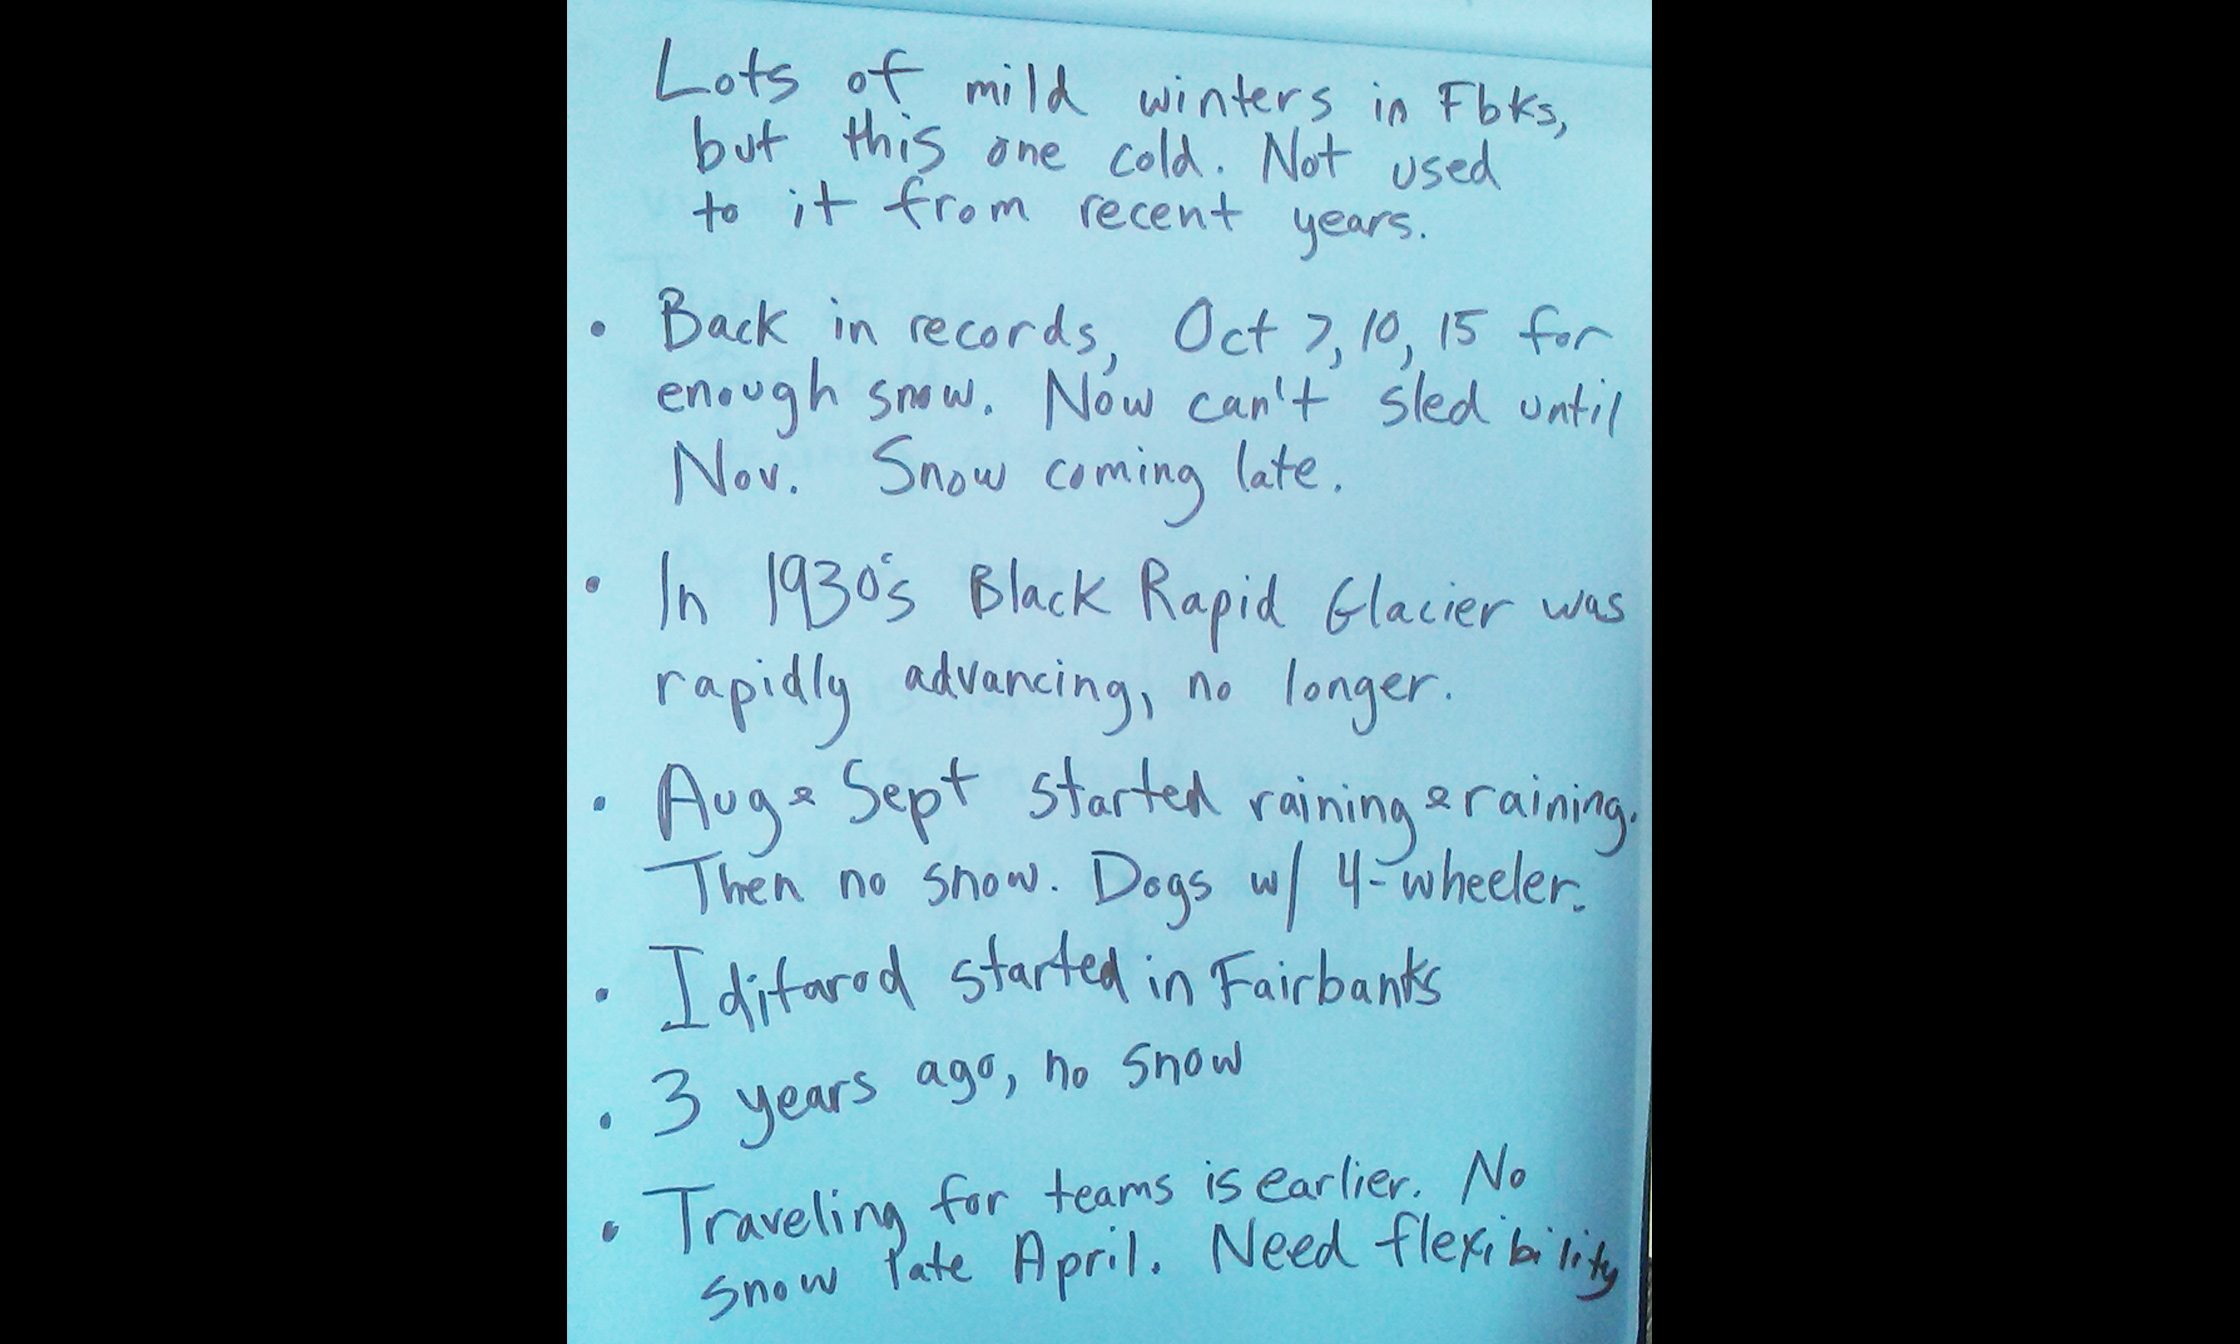 Lots of mild winters in Fbks,
but this one cold. Not used
to it from recent years.
• Back in records, Oct 7, 10, 15 for
enough snow. Now can't sled until
Nov. Snow coming late.
• In 1930's Black Rapid Glacier was
rapidly advancing, no longer.
• Aug & Sept started raining & raining.
Then no snow. Dogs w/ 4-wheeler.
• Iditarod started in Fairbanks
• 3 years ago, no snow
• Traveling for teams is earlier. No
snow late April. Need flexibility